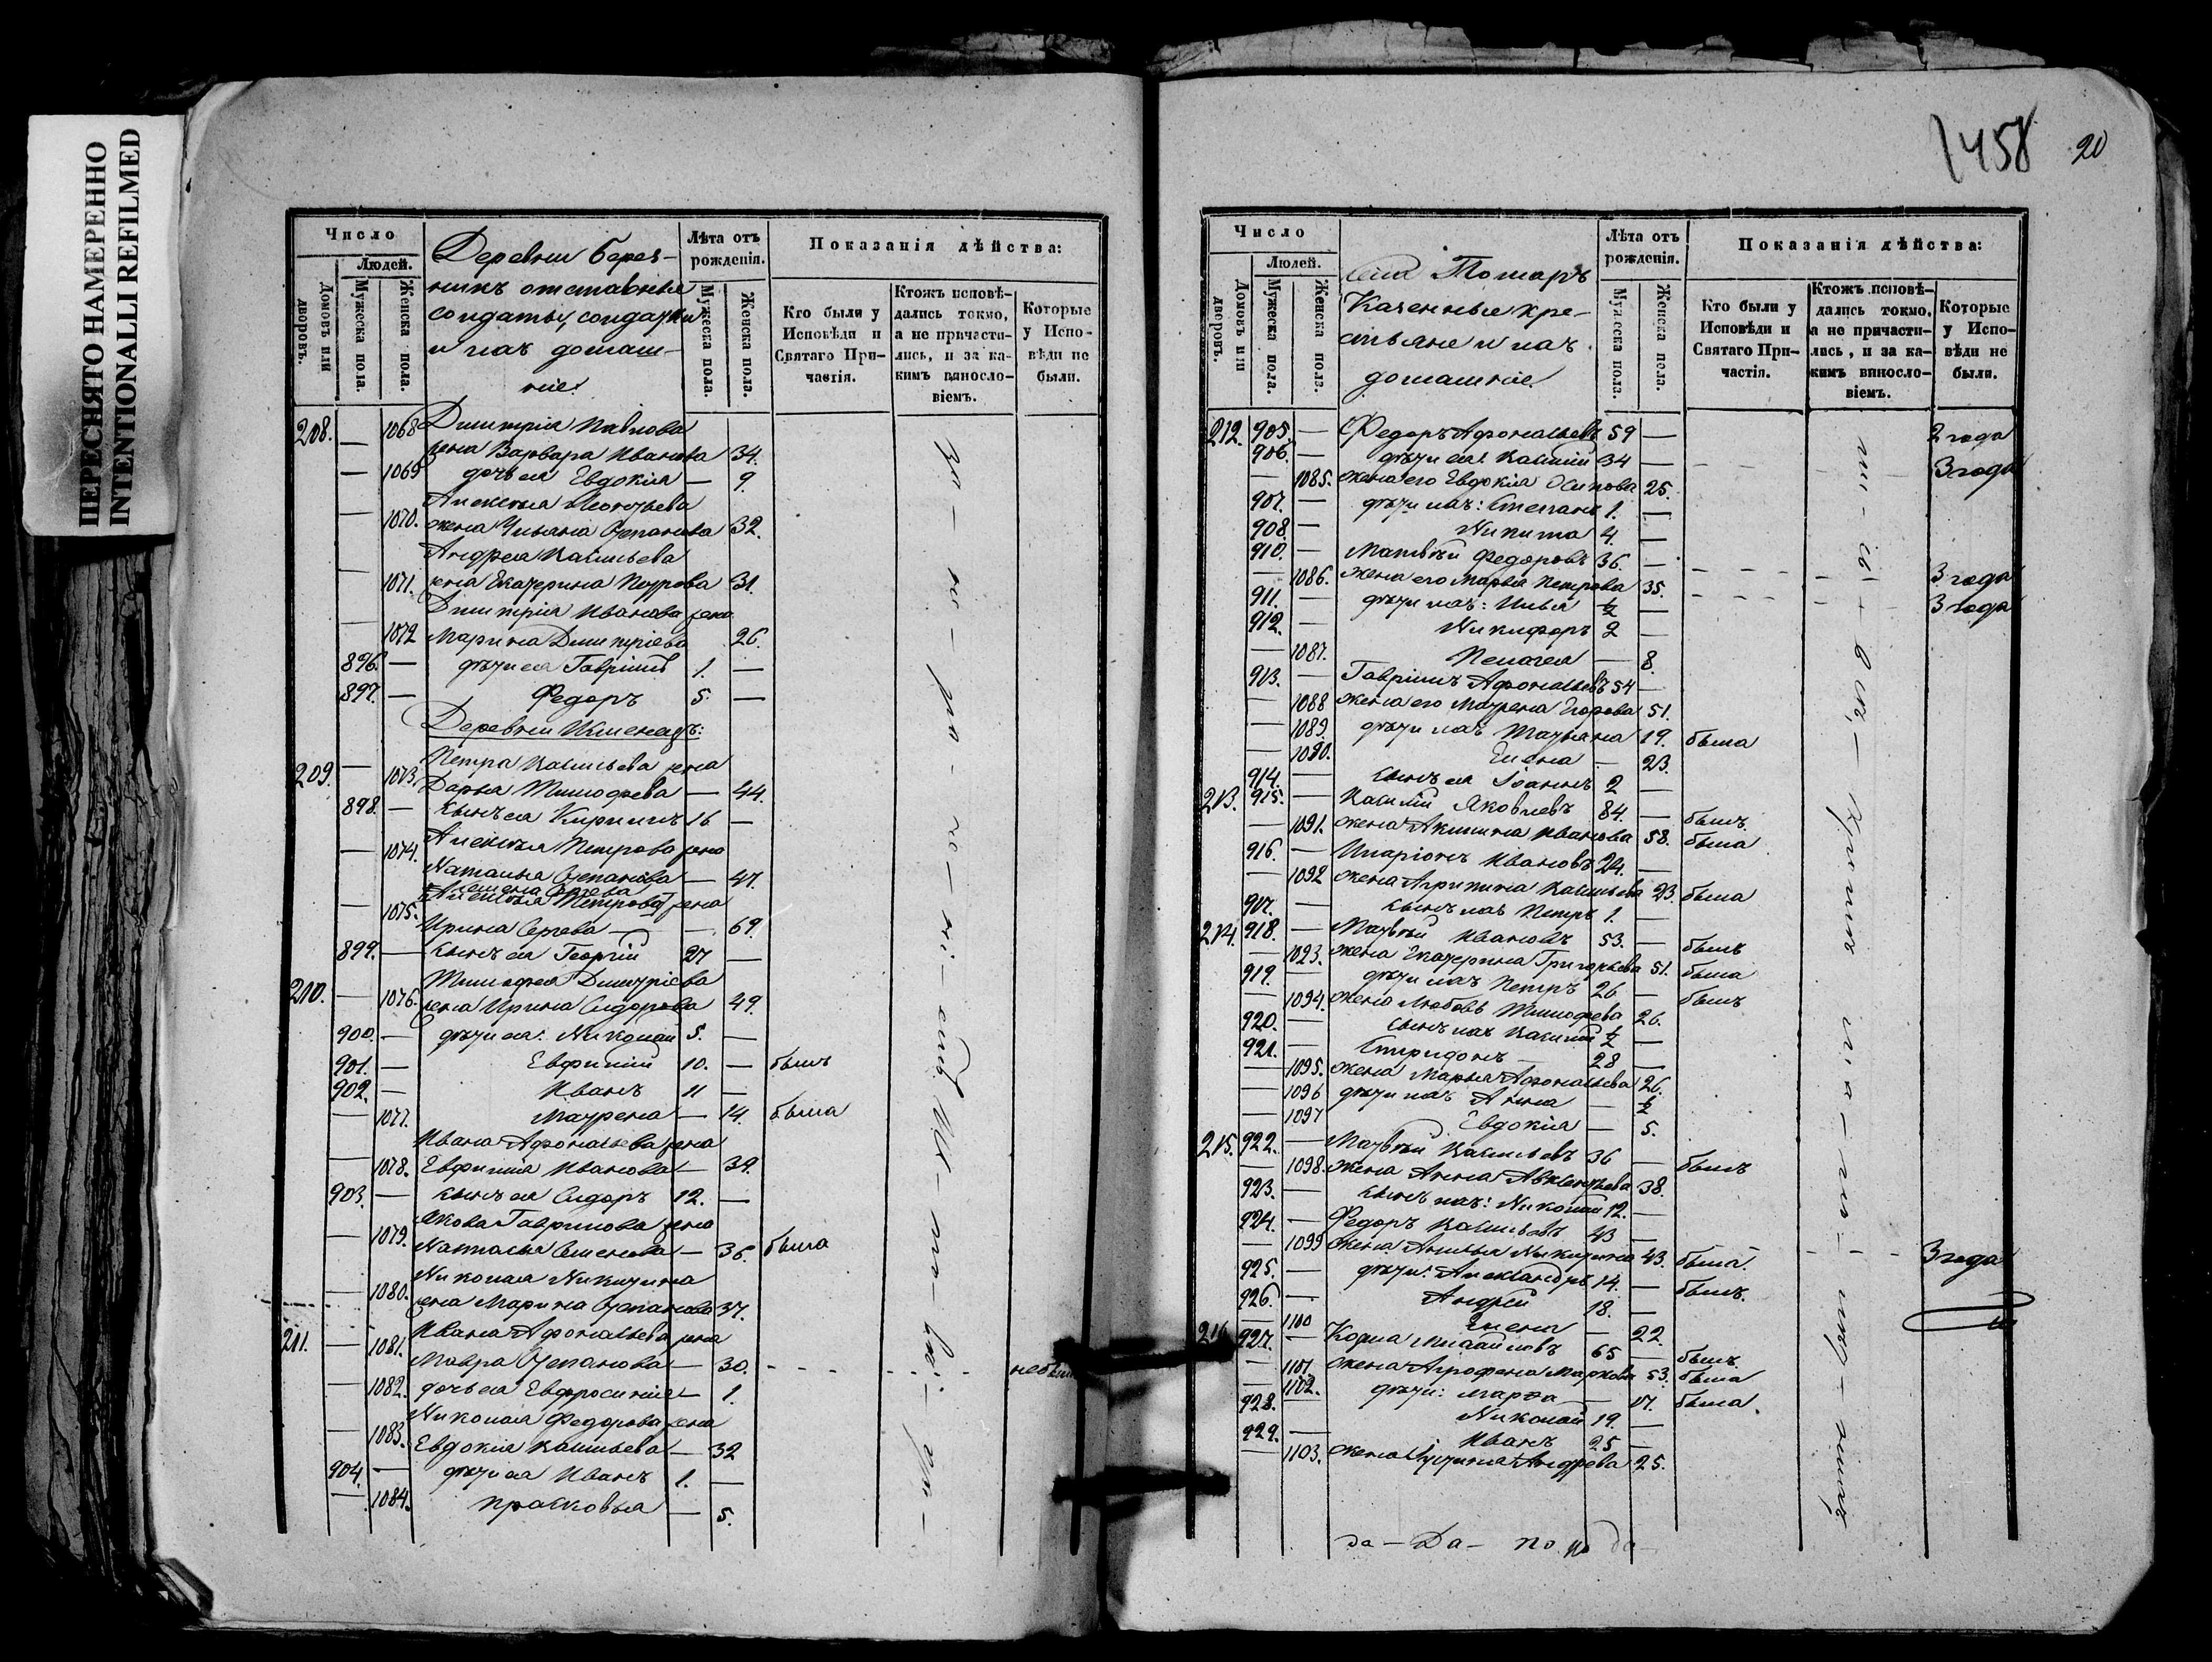 ПЕРЕСНЯТО НАМЕРЕННО
INTENTIONALLI REFILMED
Число
Людей.
Домовъ или дворовъ.
Мужеска пола.
Женска пола.
Деревни Берез-
никъ отставные
солдаты, солдатки
и ихъ домаш-
ніе:
Лѣта отъ рожденія.
Мужеска пола.
Женска пола.
Показанія дѣйства:
Кто были у Исповѣди и Святаго Причастія.
Ктожъ исповѣдались токмо, а не причастились, и за какимъ винословіемъ.
Которые у Исповѣди не были.
208. — 1068 Димитрія Павлова
жена Варвара Иванова 34.
— 1069 дочь ея Евдокія — 9.
Алексѣя Леонтьева
— 1070. жена Ульяна Степанова 32.
Андрея Васильева
— 1071. жена Екатерина Петрова 31.
Димитрія Иванова жена
— 1072 Марина Димитріева 26.
896. — дѣти ея Гавріилъ 1. —
897. — Федоръ 5. —
Петра Васильева жена
209. — 1073. Дарья Тимофеева — 44.
898. — сынъ ея Кириллъ 16 —
Алексѣя Петрова жена
— 1074. Наталья Степанова — 47.
— 1075. жена
Ирина Сергева — — 69.
899. — сынъ ея Георгій 27 —
Тимофея Димитріева
210. — 1076. жена Ирина Сидорова 49.
900. — дѣти ея: Николай 5. —
901. — Евфимій 10. — былъ
902. — Иванъ 11 —
— 1077. Матрена — 14. была
Ивана Афонасьева жена
— 1078. Евфимія Иванова — 39.
903. — сынъ ея Сидоръ 12. —
Якова Гаврилова жена
— 1079. Наталья Семенова — 36. была
Николая Никитина
— 1080. жена Марина Степанова 37.
Ивана Афонасьева жена
211. — 1081. Мавра Степанова — 30.
— 1082. дочь ея Евфросинія — 1.
Николая Федорова жена
— 1083. Евдокія Васильева — 32
904. — дѣти ея Иванъ 1. —
— 1084. Прасковья — 5.
1458 20
Число
Людей.
Домовъ или дворовъ.
Мужеска пола.
Женска пола.
Села Тошаръ
Казенные кре-
стьяне и ихъ
домашніе.
Лѣта отъ рожденія.
Мужеска пола.
Женска пола.
Показанія дѣйства:
Кто были у Исповѣди и Святаго Причастія.
Ктожъ исповѣдались токмо, а не причастились, и за какимъ винословіемъ.
Которые у Исповѣди не были.
212. 905. — Федоръ Афонасьевъ 59 — 2 года
906. — дѣти его: Василій 34 — 3 года
— 1085. жена его Евдокія Осипова 25.
907. — дѣти ихъ: Степанъ 1. —
908. — Никита 4. —
910. — Матвѣй Федоровъ 36. — 3 года
— 1086. жена его Марья Петрова 35. 3 года
911. — дѣти ихъ: Илья ½ —
912. — Никифоръ 2 —
— 1087. Пелагея — 8.
913. — Гавріилъ Афонасьевъ 54 —
— 1088 жена его Матрена Егорова 51.
— 1089. дѣти ихъ Татьяна 19. была
— 1090. Елена — 23.
914. — сынъ ея Іоаннъ 2 —
213. 915. — Василій Яковлевъ 84. — былъ.
— 1091. жена Акилина Иванова 58. была
916. — Иларіонъ Ивановъ 24. —
— 1092 жена Агрипина Васильева 23. была
917. — сынъ ихъ Петръ 1. —
214. 918. — Матвѣй Ивановъ 53. — былъ
— 1093. жена Екатерина Григорьева 51. была
919. — дѣти ихъ Петръ 26 — былъ
— 1094. жена Любовь Тимофева 26.
920. — сынъ ихъ Василій ½ —
921. — Спиридонъ 28 —
— 1095. жена Марья Афонасьева 26.
— 1096 дѣти ихъ Анна — ½
— 1097 Евдокія — 5.
215. 922. — Матвѣй Васильевъ 36 — былъ
— 1098. жена Анна Авксентьева 38.
923. — сынъ ихъ: Николай 12. —
924. — Федоръ Васильевъ 43 —
— 1099 жена Анисья Никитина 43. была. 3 года
925. — дѣти: Александръ 14. — былъ.
926. — Андрей 18. —
— 1100 Елена — 22.
216. 927. — Козма Михайловъ 65 — былъ.
— 1101 жена Агрофена Маркова 53. была
— 1102. дѣти: Марфа — 17. была.
928. — Николай 19. —
929. — Иванъ 25 —
— 1103. жена Андрева 25.
да — Да — по